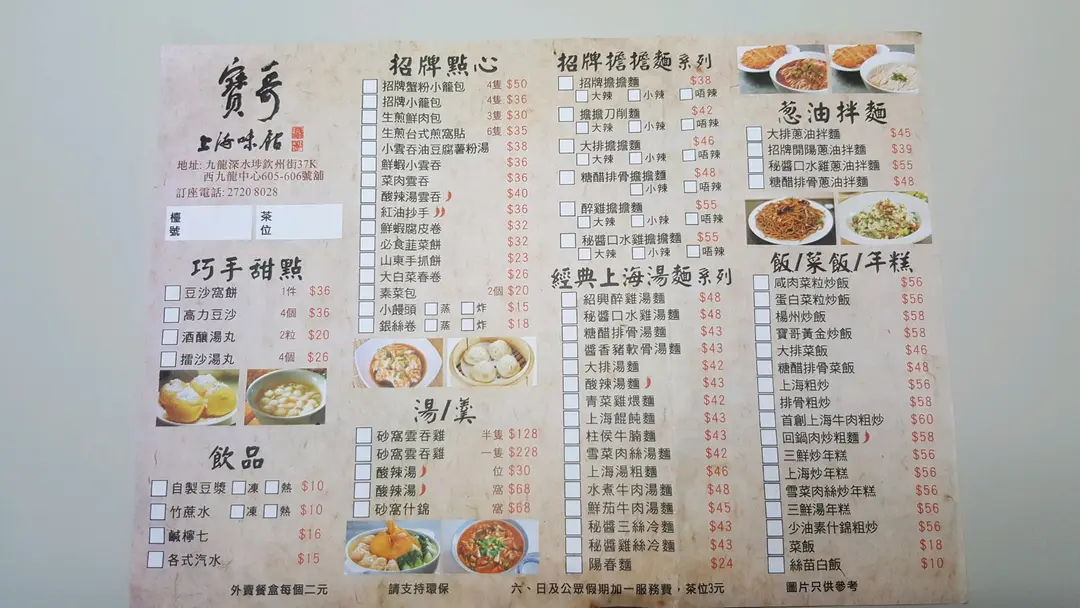 寶哥
上海味館
地址: 九龍深水埗欽州街37K
西九龍中心605-606號舖
訂座電話: 2720 8028
檯號
茶位
巧手甜點
豆沙窩餅 1件 $36
高力豆沙 4個 $36
酒釀湯丸 2粒 $20
擂沙湯丸 4個 $26
飲品
自製豆漿 凍 熱 $10
竹蔗水 凍 熱 $10
鹹檸七 $16
各式汽水 $15
招牌點心
招牌蟹粉小籠包 4隻 $50
招牌小籠包 4隻 $36
生煎鮮肉包 3隻 $30
生煎台式煎窩貼 6隻 $35
小雲吞油豆腐薯粉湯 $38
鮮蝦小雲吞 $36
菜肉雲吞 $36
酸辣湯雲吞 $40
紅油抄手 $36
鮮蝦腐皮卷 $32
必食韮菜餅 $32
山東手抓餅 $23
大白菜春卷 $26
素菜包 2個 $20
小饅頭 蒸 炸 $15
銀絲卷 蒸 炸 $18
湯/羹
砂窩雲吞雞 半隻 $128
砂窩雲吞雞 一隻 $228
酸辣湯 位 $30
酸辣湯 窩 $68
砂窩什錦 窩 $68
招牌擔擔麵系列
招牌擔擔麵 $38
大辣 小辣 唔辣
擔擔刀削麵 $42
大辣 小辣 唔辣
大排擔擔麵 $46
大辣 小辣 唔辣
糖醋排骨擔擔麵 $48
小辣 唔辣
醉雞擔擔麵 $55
大辣 小辣 唔辣
秘醬口水雞擔擔麵 $55
大辣 小辣 唔辣
經典上海湯麵系列
紹興醉雞湯麵 $48
秘醬口水雞湯麵 $48
糖醋排骨湯麵 $43
醬香豬軟骨湯麵 $43
大排湯麵 $42
酸辣湯麵 $43
青菜雞煨麵 $42
上海餛飩麵 $43
柱侯牛腩麵 $43
雪菜肉絲湯麵 $42
上海湯粗麵 $46
水煮牛肉湯麵 $48
鮮茄牛肉湯麵 $45
秘醬三絲冷麵 $43
秘醬雞絲冷麵 $43
陽春麵 $24
蔥油拌麵
大排蔥油拌麵 $45
招牌開陽蔥油拌麵 $39
秘醬口水雞蔥油拌麵 $55
糖醋排骨蔥油拌麵 $48
飯/菜飯/年糕
咸肉菜粒炒飯 $56
蛋白菜粒炒飯 $56
楊州炒飯 $58
寶哥黃金炒飯 $58
大排菜飯 $46
糖醋排骨菜飯 $48
上海粗炒 $56
排骨粗炒 $58
首創上海牛肉粗炒 $60
回鍋肉炒粗麵 $58
三鮮炒年糕 $56
上海炒年糕 $56
雪菜肉絲炒年糕 $56
三鮮湯年糕 $56
少油素什錦粗炒 $56
菜飯 $18
絲苗白飯 $10
外賣餐盒每個二元
請支持環保
六、日及公眾假期加一服務費，茶位3元
圖片只供參考